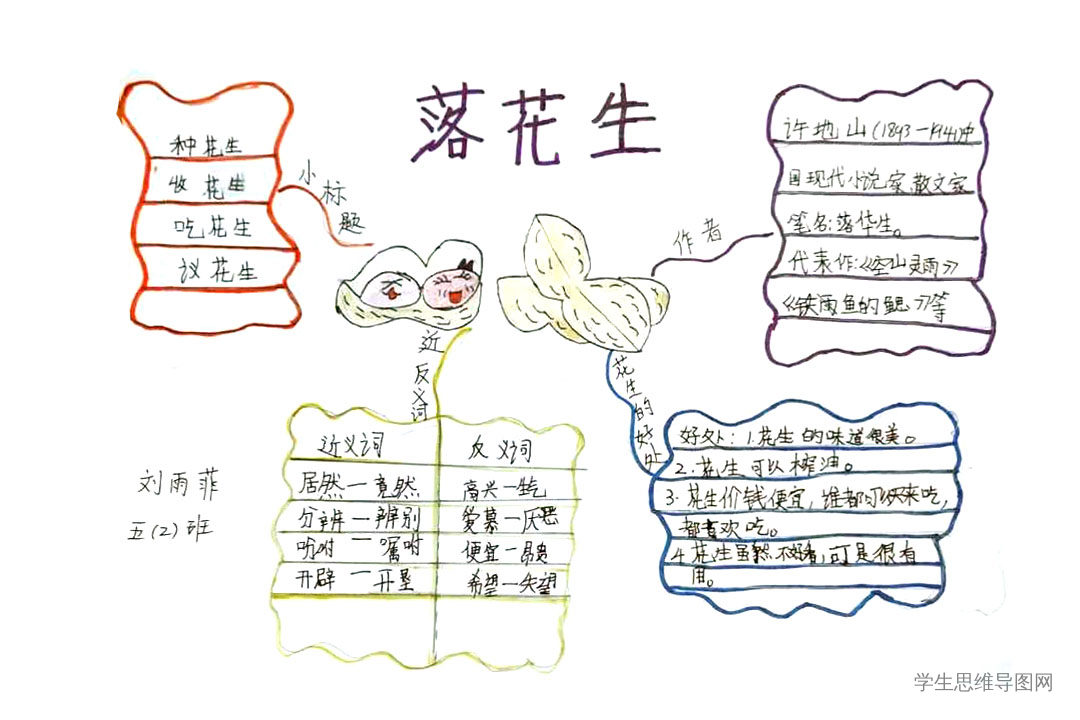 落花生
小标题
种花生
收花生
吃花生
议花生
作者
许地山(1893一1941)中
国现代小说家,散文家
笔名:落华生。
代表作:《空山灵雨》
《铁雨鱼的鳃》等
近反义词
近义词 反义词
居然一竟然 高兴一生气
分辨一辨别 爱慕一厌恶
吩咐一嘱咐 便宜一昂贵
开辟一开垦 希望一失望
花生的好处
好处:1.花生的味道很美。
2.花生可以榨油。
3.花生价钱便宜,谁都可以买来吃,
都喜欢吃。
4.花生虽然不好看,可是很有
用。
刘雨菲
五(2)班
学生思维导图网